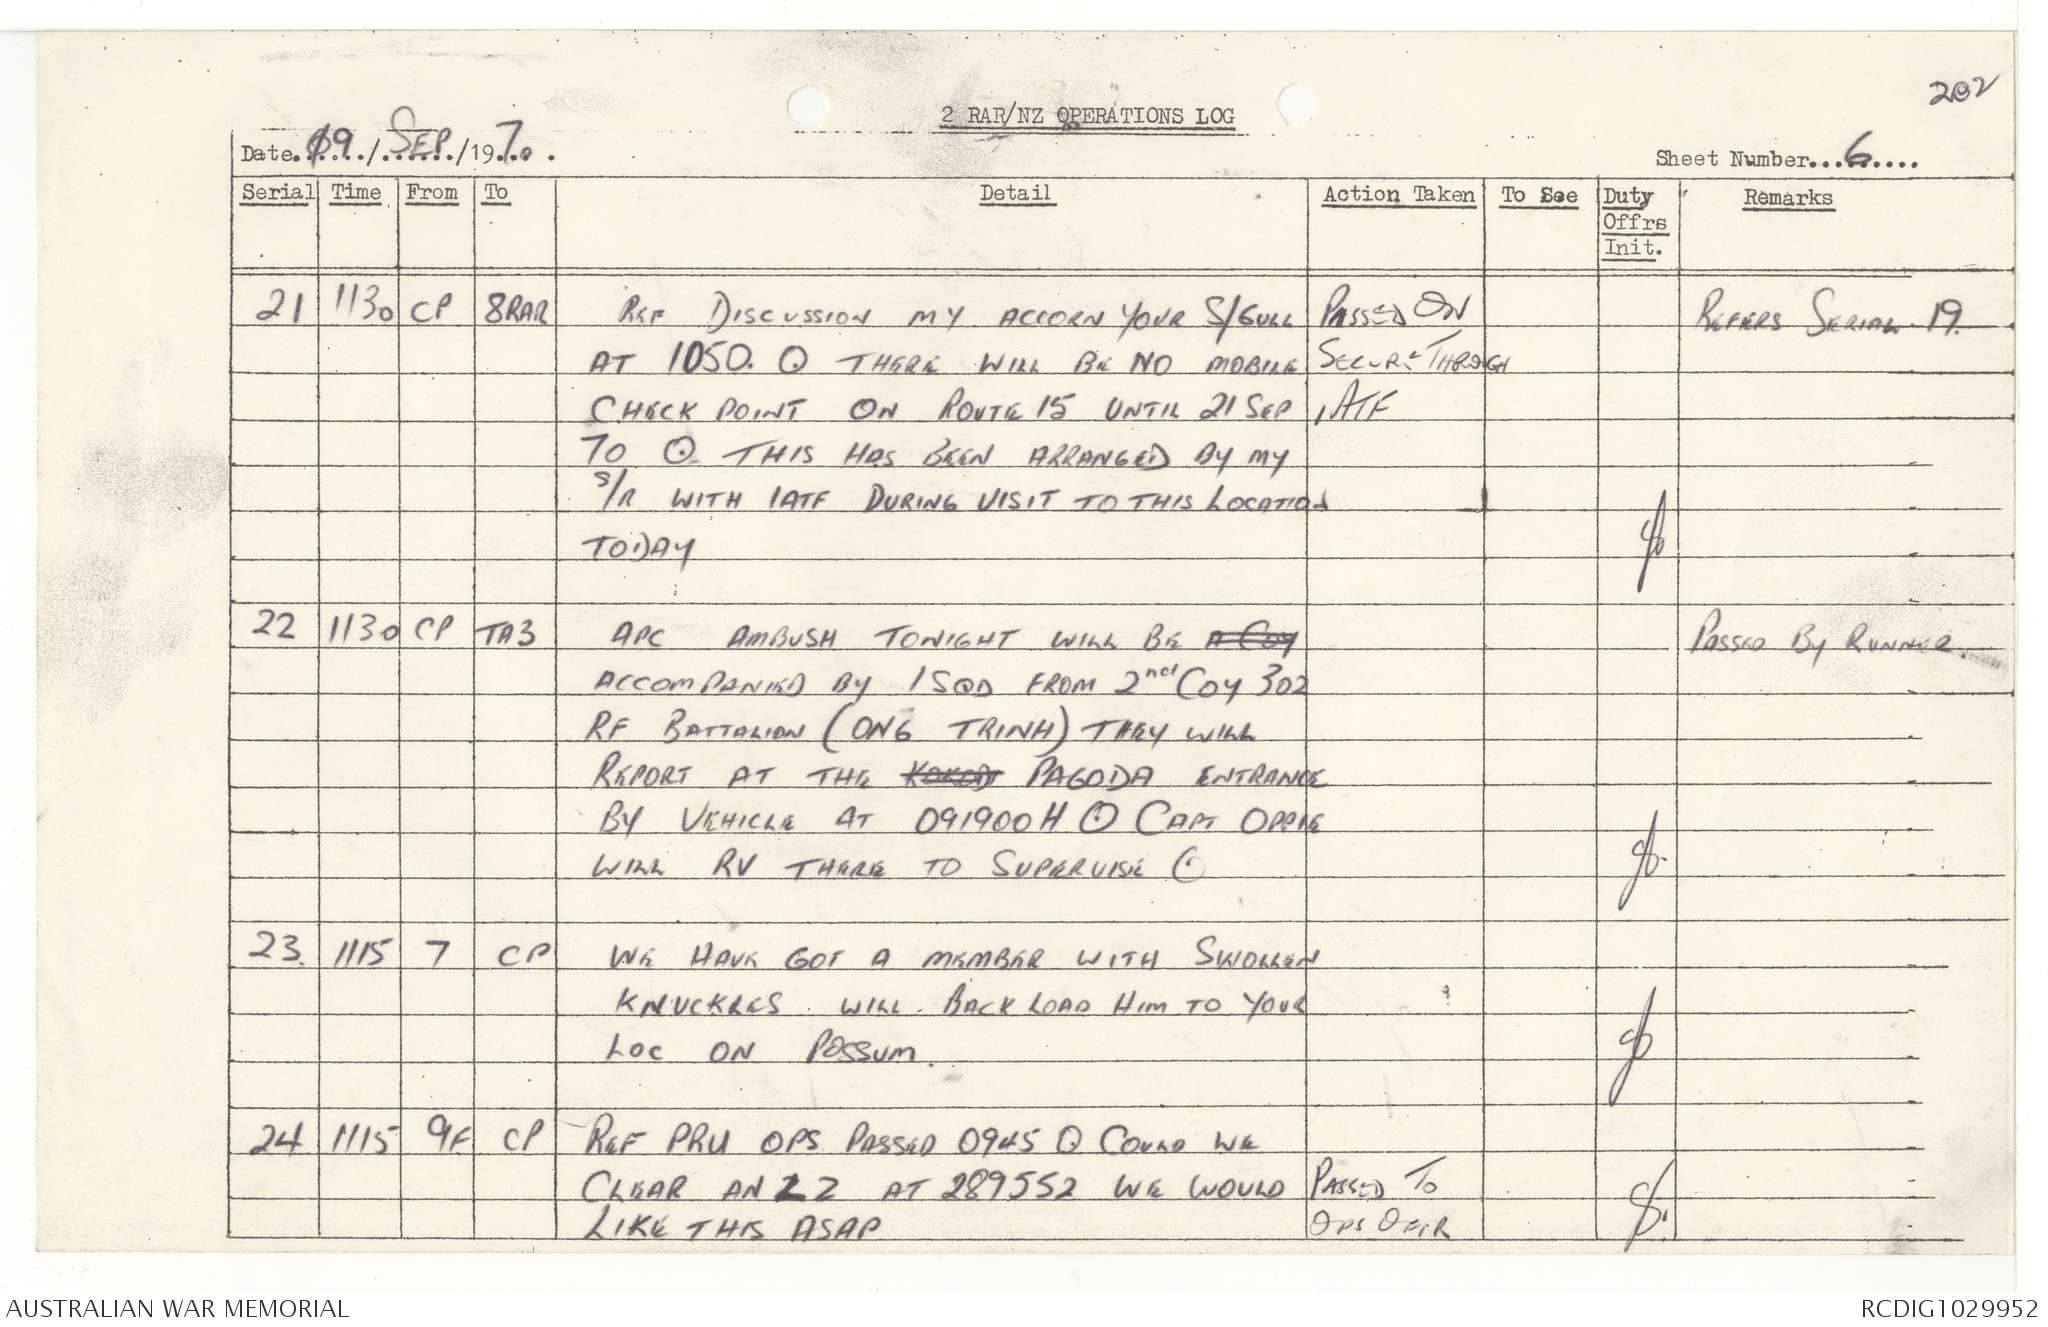 202
2 RAR/NZ OPERATIONS LOG
Date 09/SEP/1970.
Sheet Number 6
Serial Time From To Detail Action Taken To See Duty Offrs Init. Remarks
21 1130 CP 8RAR REF DISCUSSION MY ACCORN YOUR S/GULL PASSED ON REFERS SERIAL 19.
AT 1050. THERE WILL BE NO MOBILE SECURE THROUGH
CHECK POINT ON ROUTE 15 UNTIL 21 SEP 1ATF
70 THIS HAS BEEN ARRANGED BY MY
S/R WITH 1ATF DURING VISIT TO THIS LOCATION
TODAY
22 1130 CP TA3 APC AMBUSH TONIGHT WILL BE A COY PASSED BY RUNNER
ACCOMPANIED BY 1 SQD FROM 2nd COY 302
RF BATTALION (ONG TRINH) THEY WILL
REPORT AT THE PAGODA ENTRANCE
BY VEHICLE AT 091900H CAPT OPPIE
WILL RV THERE TO SUPERVISE
23. 1115 7 CP WE HAVE GOT A MEMBER WITH SWOLLEN
KNUCKLES. WILL BACK LOAD HIM TO YOUR
LOC ON POSSUM.
24 1115 9F CP REF PRU OPS PASSED 0945 COULD WE
CLEAR AN LZ AT 289552 WE WOULD PASSED TO
LIKE THIS ASAP OPS OFFR
AUSTRALIAN WAR MEMORIAL
RCDIG1029952